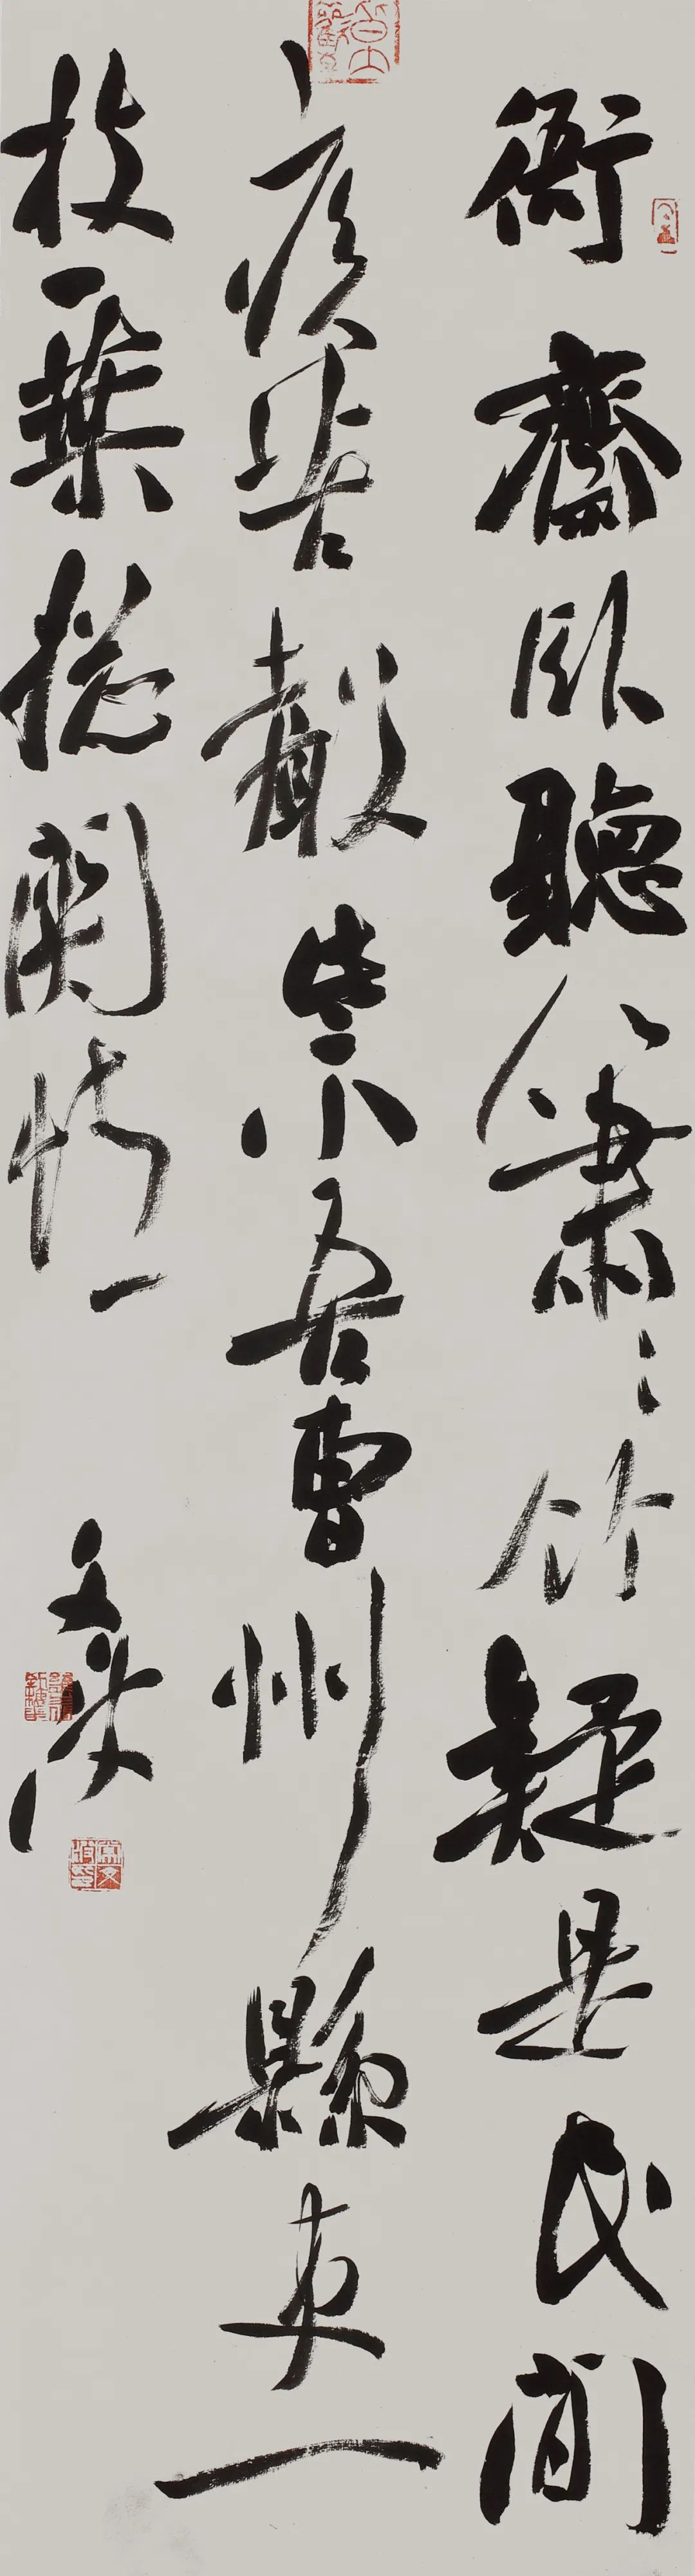 衙齋臥聽蕭〻竹疑是民間
疾苦聲些小吾曹州縣吏一
枝一葉總關情